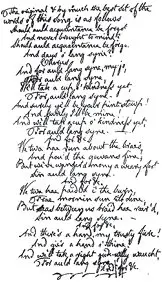 The original & by much the best set of the
words of this song is as follows
Should auld acquaintance be forgot,
And never brought to mind?
Should auld acquaintance be forgot,
And days o' lang syne?
Chorus
And for auld lang syne, my jo,
For auld lang syne,
We'll tak a cup o' kindness yet,
For auld lang syne.
And surely ye'll be your pint-stowp!
And surely I'll be mine!
And we'll tak a cup o' kindness yet,
For auld lang syne.
And for &c
We twa hae run about the braes,
And pou'd the gowans fine;
But we've wander'd mony a weary
Sin auld lang syne.
And for &c
We twa hae paidl'd i' the burn,
Frae morning sun till dine;
But seas between us braid hae roar'd,
Sin auld lang syne.
And for &c
And there's a hand, my trusty fiere!
And gie's a hand o' thine!
And we'll tak a right gude-willy waught,
For auld lang syne.
And for &c